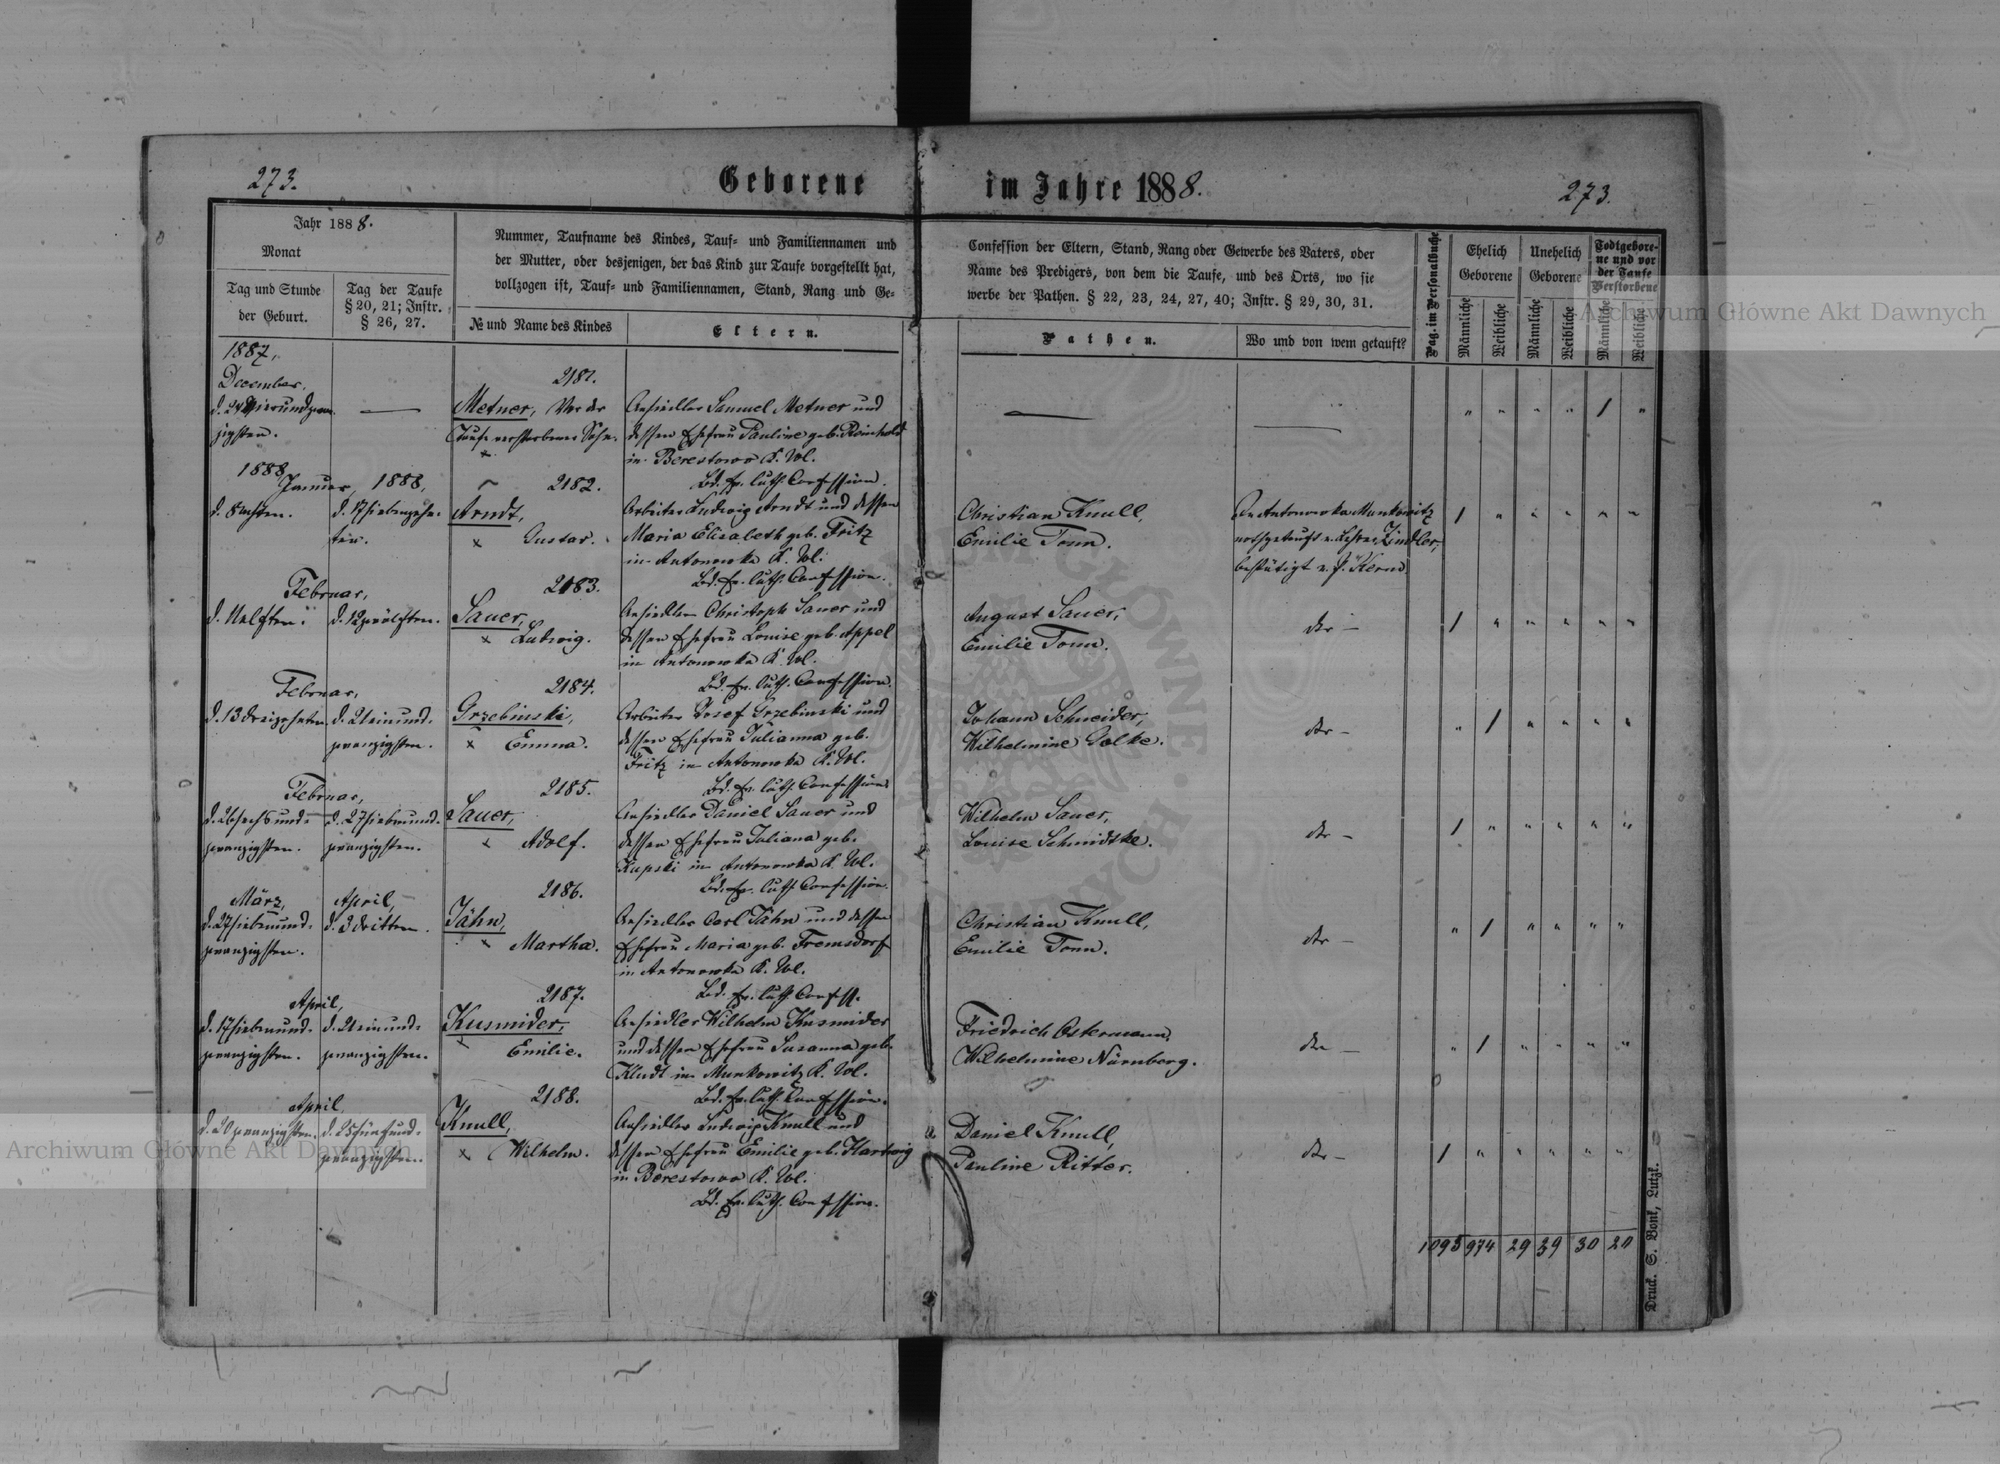 273.
Geborene im Jahre 1888.
273.
Jahr 1888.
Monat
Tag und Stunde
der Geburt.
Tag der Taufe
§ 20, 21; Instr.
§ 26, 27.
Nummer, Taufname des Kindes, Tauf- und Familiennamen und
der Mutter, oder desjenigen, der das Kind zur Taufe vorgestellt hat,
vollzogen ist, Tauf- und Familiennamen, Stand, Rang und Ge-
№ und Name des Kindes
Eltern.
Confession der Eltern, Stand, Rang oder Gewerbe des Vaters, oder
Name des Predigers, von dem die Taufe, und des Orts, wo sie
werbe der Pathen. § 22, 23, 24, 27, 40; Instr. § 29, 30, 31.
Pathen.
Wo und von wem getauft?
Pag. im Personalbuche
Ehelich
Geborene
Unehelich
Geborene
Todtgebore-
ne und vor
der Taufe
Verstorbene
Männliche
Weibliche
Männliche
Weibliche
Männliche
Weibliche
1887,
December,
d. 24 Vierundzwan-
zigsten.
2181.
Metner, Vor der
Taufe verstorbener Sohn.
Ansiedler Samuel Metner und
dessen Ehefrau Pauline geb. Reinhold
in Berestowo K. Wol.
Bd. Ev. luth. Confession.
1888
Januar, 1888,
d. 8 achten.
d. 17 siebenzehn-
ten.
2182.
Arndt,
Gustav.
Arbeiter Ludwig Arndt und dessen
Maria Elisabeth geb. Fritz
in Antonowka K. Wol.
Bd. Ev. luth. Confession.
Christian Knull,
Emilie Tonn.
In Antonowka Munkowitz
nothgetauft v. Lehrer Zindler,
bestätigt v. P. Kern.
Februar,
d. 11 elften.
d. 12 zwölften.
2183.
Sauer,
Ludwig.
Ansiedler Christoph Sauer und
dessen Ehefrau Louise geb. Appel
in Antonowka K. Wol.
Bd. Ev. luth. Confession.
August Sauer,
Emilie Tonn.
Februar,
d. 13 dreizehnten.
d. 21 einund-
zwanzigsten.
2184.
Grzebinski,
Emma.
Arbeiter Josef Grzebinski und
dessen Ehefrau Julianna geb.
Fritz in Antonowka K. Wol.
Bd. Ev. luth. Confession
Johann Schneider,
Wilhelmine Golke.
Februar,
d. 26 sechsund-
zwanzigsten.
d. 27 siebenund-
zwanzigsten.
2185.
Sauer,
Adolf.
Ansiedler Daniel Sauer und
dessen Ehefrau Juliana geb.
Kupski in Antonowka K. Wol.
Bd. Ev. luth. Confession.
Wilhelm Sauer,
Louise Schmidtke.
März,
d. 27 siebenund-
zwanzigsten.
April,
d. 3 dritten.
2186.
Jähn,
Martha.
Ansiedler Carl Jähn und dessen
Ehefrau Maria geb. Fremsdorf
in Antonowka K. Wol.
Bd. Ev. luth. Confess.
Christian Knull,
Emilie Tonn.
April,
d. 17 siebenund-
zwanzigsten.
d. 21 einund-
zwanzigsten.
2187.
Kusmider,
Emilie.
Ansiedler Wilhelm Kusmider
und dessen Ehefrau Susanna geb.
Kludt in Munkowitz K. Wol.
Bd. Ev. luth. Confession.
Friedrich Ostermann,
Wilhelmine Nürnberg.
April
d. 20 zwanzigsten.
d. 25 fünfund-
zwanzigsten.
2188.
Knull,
Wilhelm.
Ansiedler Ludwig Knull und
dessen Ehefrau Emilie geb. Hartwig
in Berestowo K. Wol.
Bd. Ev. luth. Confession.
Daniel Knull,
Pauline Ritter.
1093 974 29 39 30 20
Druck. S. Bonk, Lutzk.
Archiwum Główne Akt Dawnych
Archiwum Główne Akt Dawnych